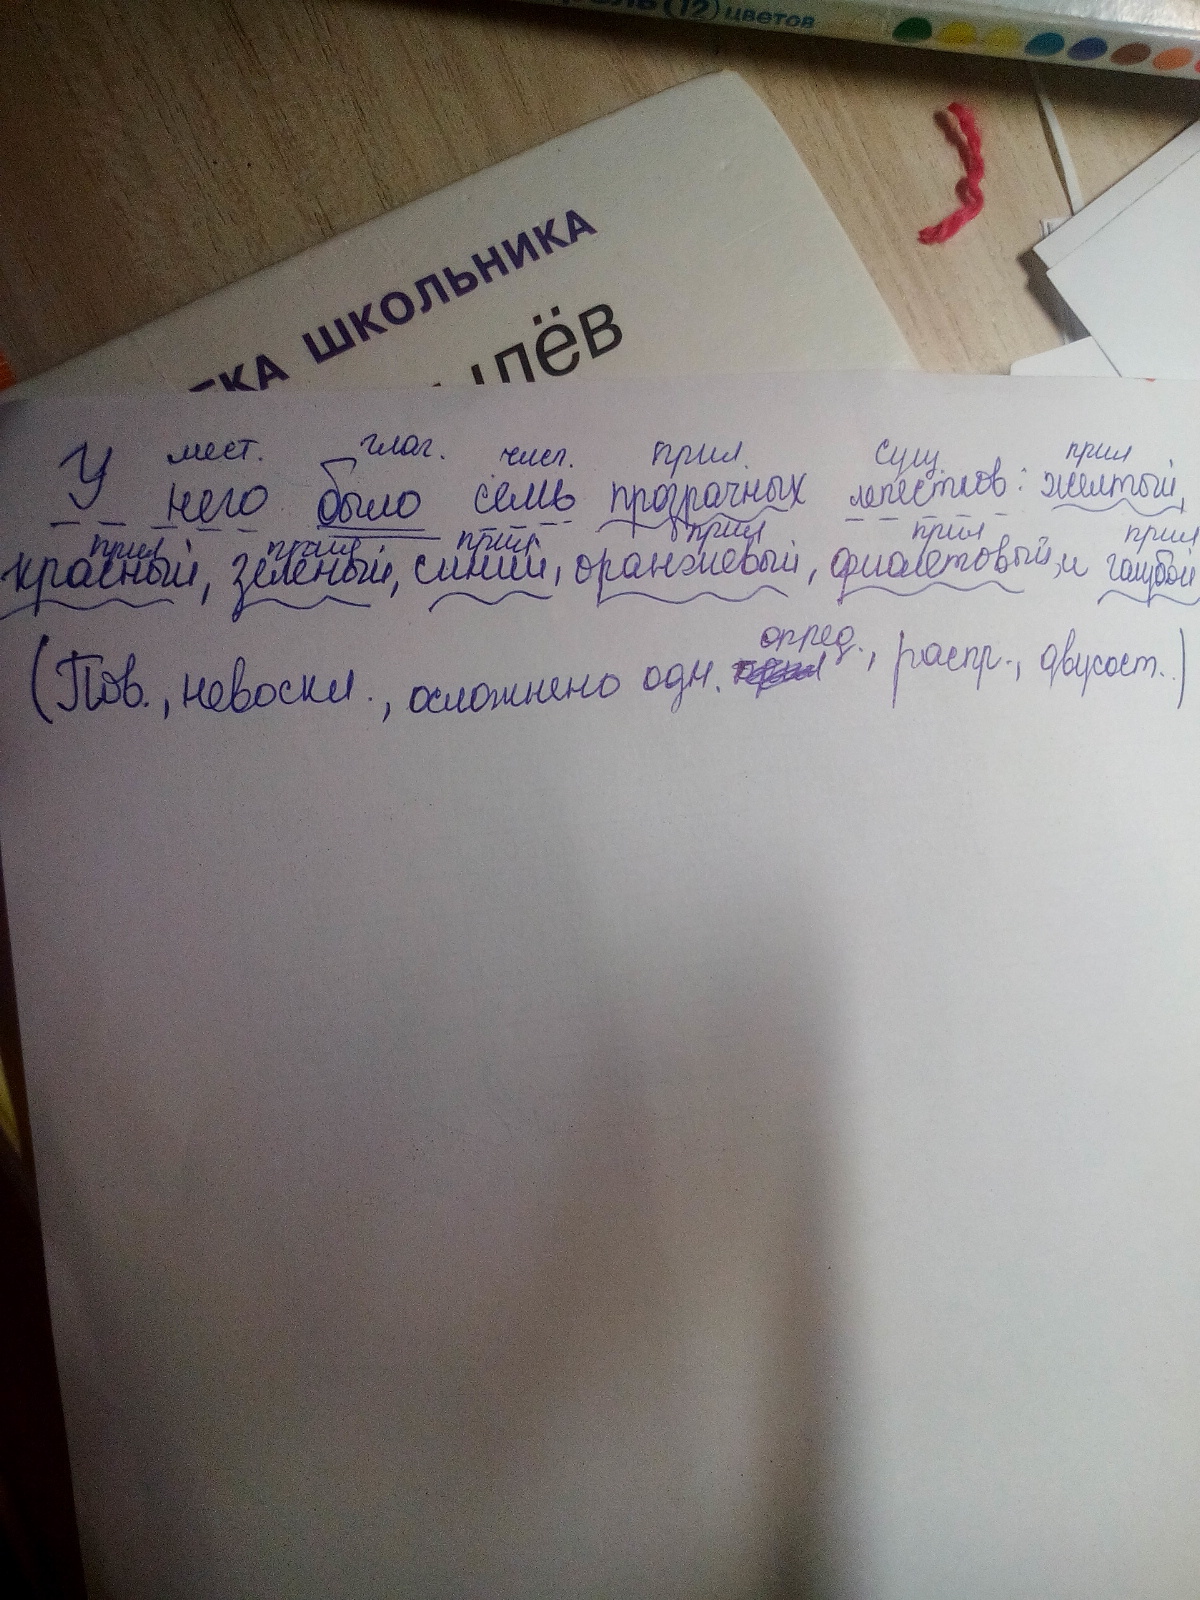 (12) цветов
ШКОЛЬНИКА
мест. глаг. числ. прил. сущ. прил
У него было семь прозрачных лепестков: желтый,
прил прил прил прил прил прил
красный, зеленый, синий, оранжевый, фиолетовый, и голубой
опред.
(Пов., невоскл., осложнено одн. , распр., двусост.)